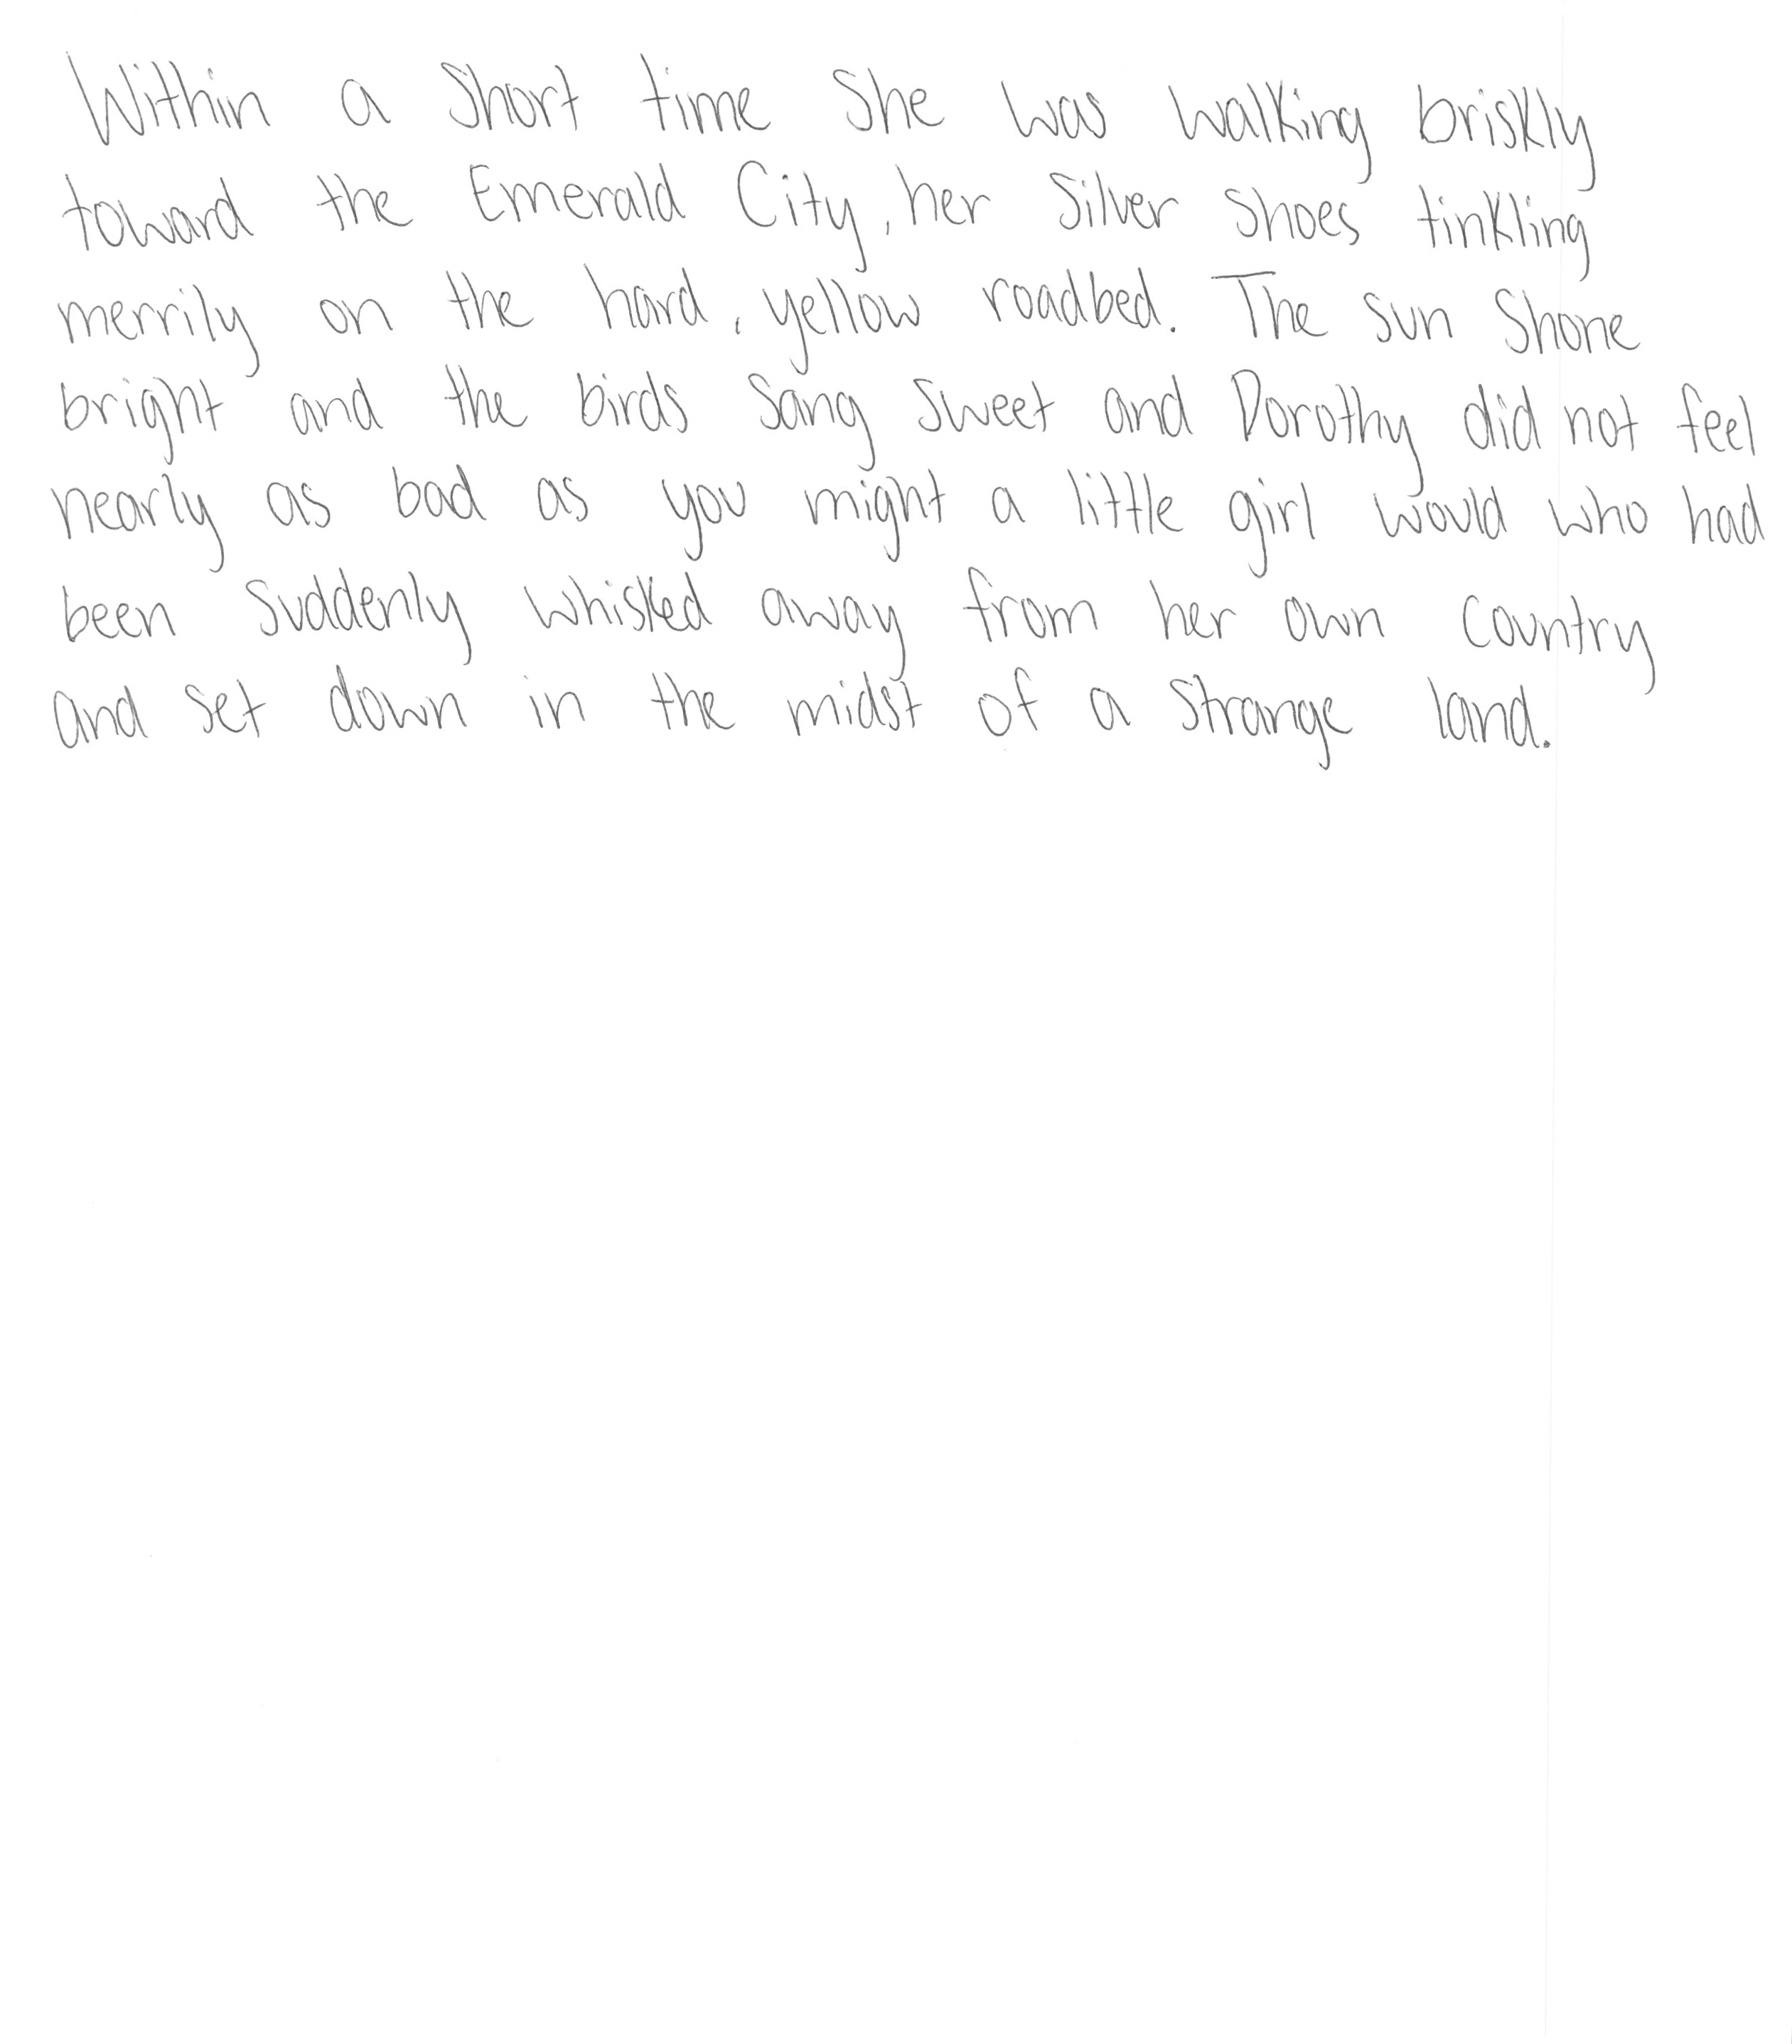 Within a short time she was walking briskly
toward the Emerald City, her Silver Shoes tinkling
merrily on the hard, yellow roadbed. The sun shone
bright and the birds sang sweet and Dorothy did not feel
nearly as bad as you might a little girl would who had
been suddenly whisked away from her own country
and set down in the midst of a strange land.